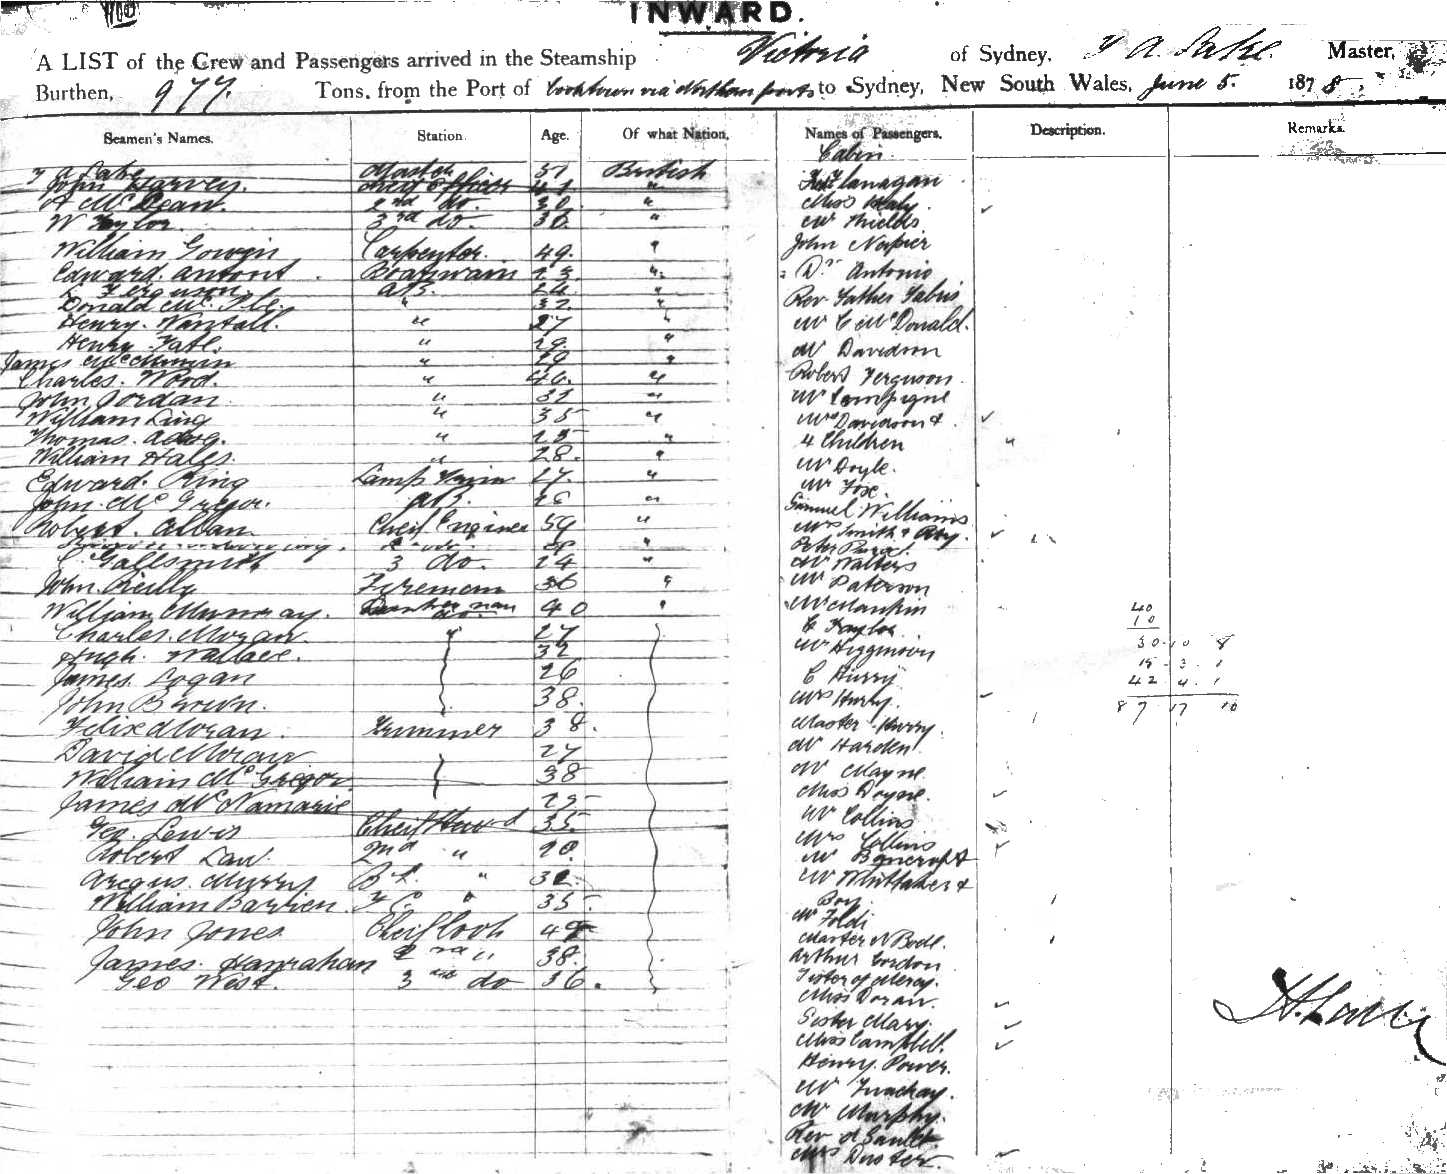 INWARD.
A LIST of the Crew and Passengers arrived in the Steamship Victoria of Sydney, A. Lake Master,
Burthen, 977. Tons, from the Port of Cooktown via Northern ports to Sydney, New South Wales, June 5. 1878,
Seamen's Names. Station. Age. Of what Nation. Names of Passengers, Description. Remarks.
Cabin
A Lake Master 51 British
John Harvey. Cheif Officer 41 "
A McLean. 2nd do. 30. "
W Taylor 3rd do. 36. "
William Gowen Carpenter. 49. "
Edward. Boatswain 23. "
L Ferguson AB. 24 "
Donald Mc 32. "
Henry. " 27 "
Henry " 29. "
James " 29 "
Charles. Wood. " 46. "
John Jordan " 31 "
William King " 35 "
Thomas. " 25 "
William Hales. " 28. "
Edward. King Lamp 27. "
John. McGregor. AB. "
Robert. Allan Cheif Engineer 59 "
3 do. 24 "
John Reilly Fireman 36 "
William Murray. 40 "
Charles. Moran 27
Hugh. Wallace. 32
James. Logan 26
John Brown. 38.
Felix Moran. Trimmer 38.
David Moran 27
William McGregor 38
James McNamarie 25
Geo. Lewis Cheif Steward 35.
Robert Law. 2nd " 20.
Argus. Murry B.S. " 32.
William Barren. F.C. " 35.
John Jones Cheif Cook
James. Hanrahan 2nd " 38.
Geo West. 3 do 36.
Flanagan
Miss Healy
Mr Shields
John Napier
Dr Antonio
Rev Father Fabris
Mr C McDonald.
Mr Davidson
Robert Ferguson
Mr Lampigne
Mrs Davidson &
4 Children "
Mr Doyle.
Mr Fox.
Samuel Williams
Mrs Smith &
Peter
Mr Walters
Mr Paterson
Mr Mankin
C Taylor
Mr Higginson
C Hurry
Mrs Hurry
Master Hurry.
Mr Harden
Mr Mayne
Miss Doyne.
Mr Collins
Mrs Collins
Mr Bancroft
Mr Whittaker &
Boy
Mr Foldi
Master N Bode.
Arthur Gordon
Sister of Mercy.
Miss Doran.
Sister Mary.
Miss Campbell.
Henry. Power.
Mr
Mr Murphy.
Rev
Mrs
40
10
30.10 8
15.3.1
42.4.1
87 17 10